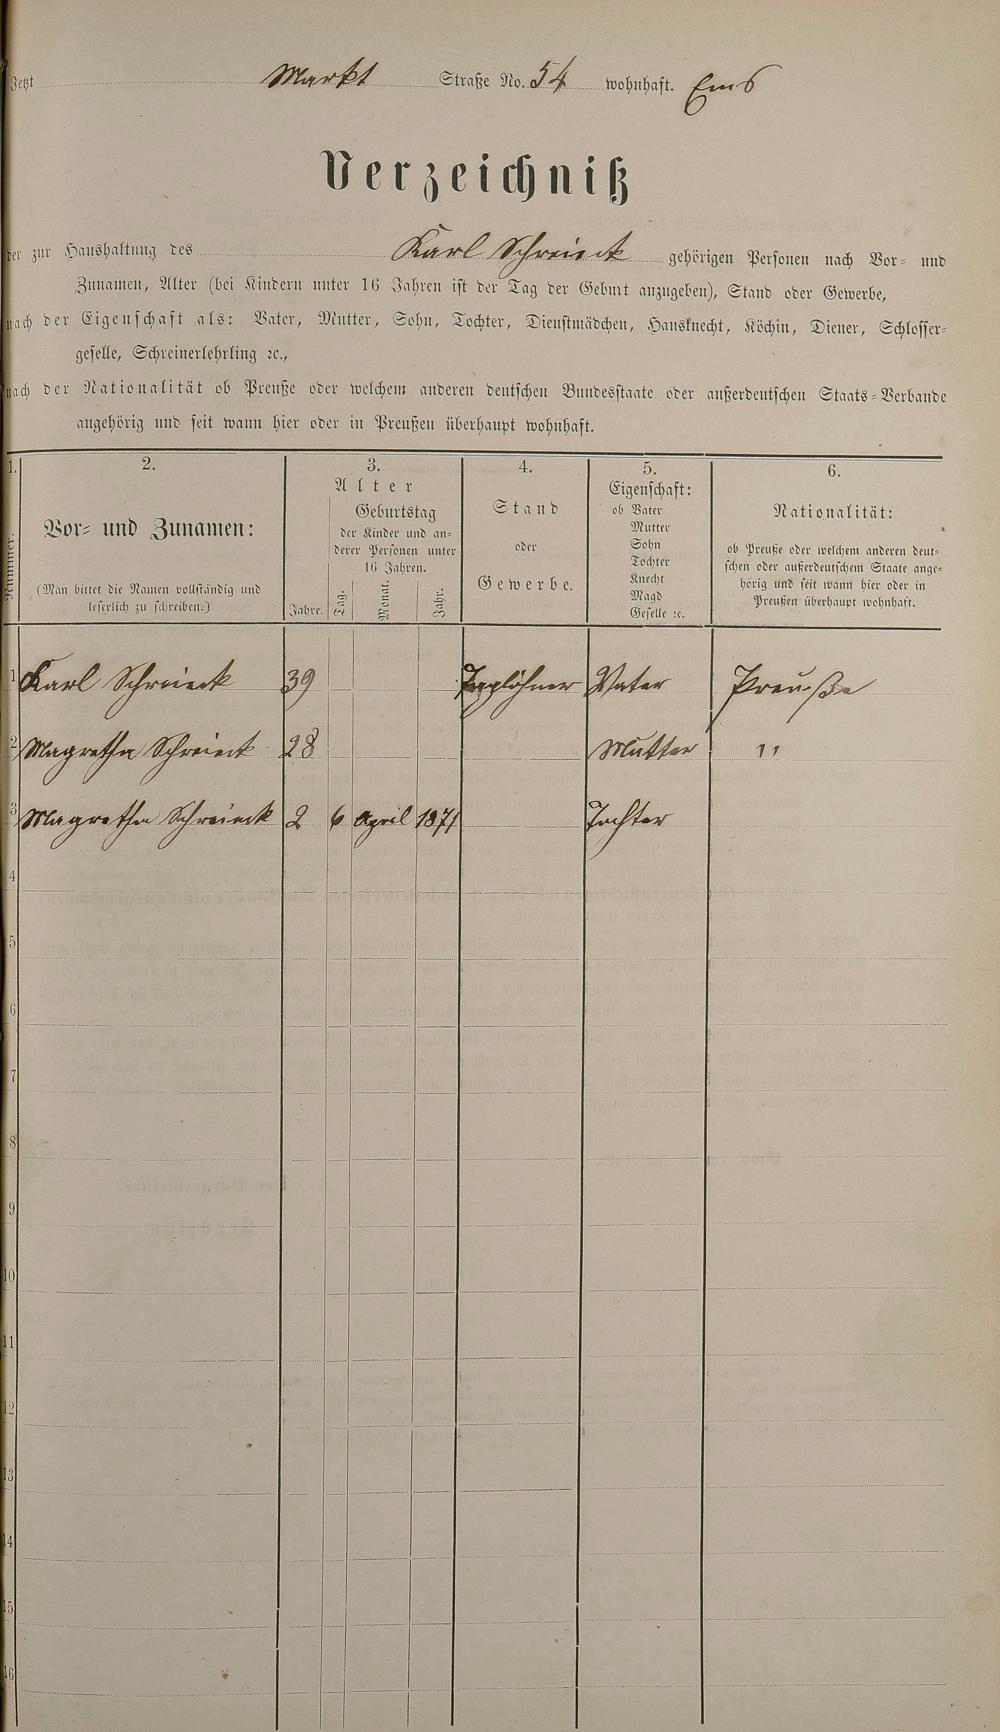 Jetzt Markt Straße No. 54 wohnhaft. Ems
Verzeichniß
der zur Haushaltung des Karl Schreieck gehörigen Personen nach Vor- und
Zunamen, Alter (bei Kindern unter 16 Jahren ist der Tag der Geburt anzugeben), Stand oder Gewerbe,
nach der Eigenschaft als: Vater, Mutter, Sohn, Tochter, Dienstmädchen, Hausknecht, Köchin, Diener, Schlosser-
geselle, Schreinerlehrling ꝛc.,
nach der Nationalität ob Preuße oder welchem anderen deutschen Bundesstaate oder außerdeutschen Staats-Verbande
angehörig und seit wann hier oder in Preußen überhaupt wohnhaft.
1. 2. 3. 4. 5. 6.
Nummer.
Vor- und Zunamen:
(Man bittet die Namen vollständig und
leserlich zu schreiben.)
Alter
Jahre.
Geburtstag
der Kinder und an-
derer Personen unter
16 Jahren.
Tag. Monat. Jahr.
Stand
oder
Gewerbe.
Eigenschaft:
ob Vater
Mutter
Sohn
Tochter
Knecht
Magd
Geselle ꝛc.
Nationalität:
ob Preuße oder welchem anderen deut-
schen oder außerdeutschem Staate ange-
hörig und seit wann hier oder in
Preußen überhaupt wohnhaft.
1 Karl Schreieck 39 Taglöhner Vater Preuße
2 Magretha Schreieck 28 Mutter "
3 Magretha Schreieck 2 6 April 1871 Tochter
4
5
6
7
8
9
10
11
12
13
14
15
16